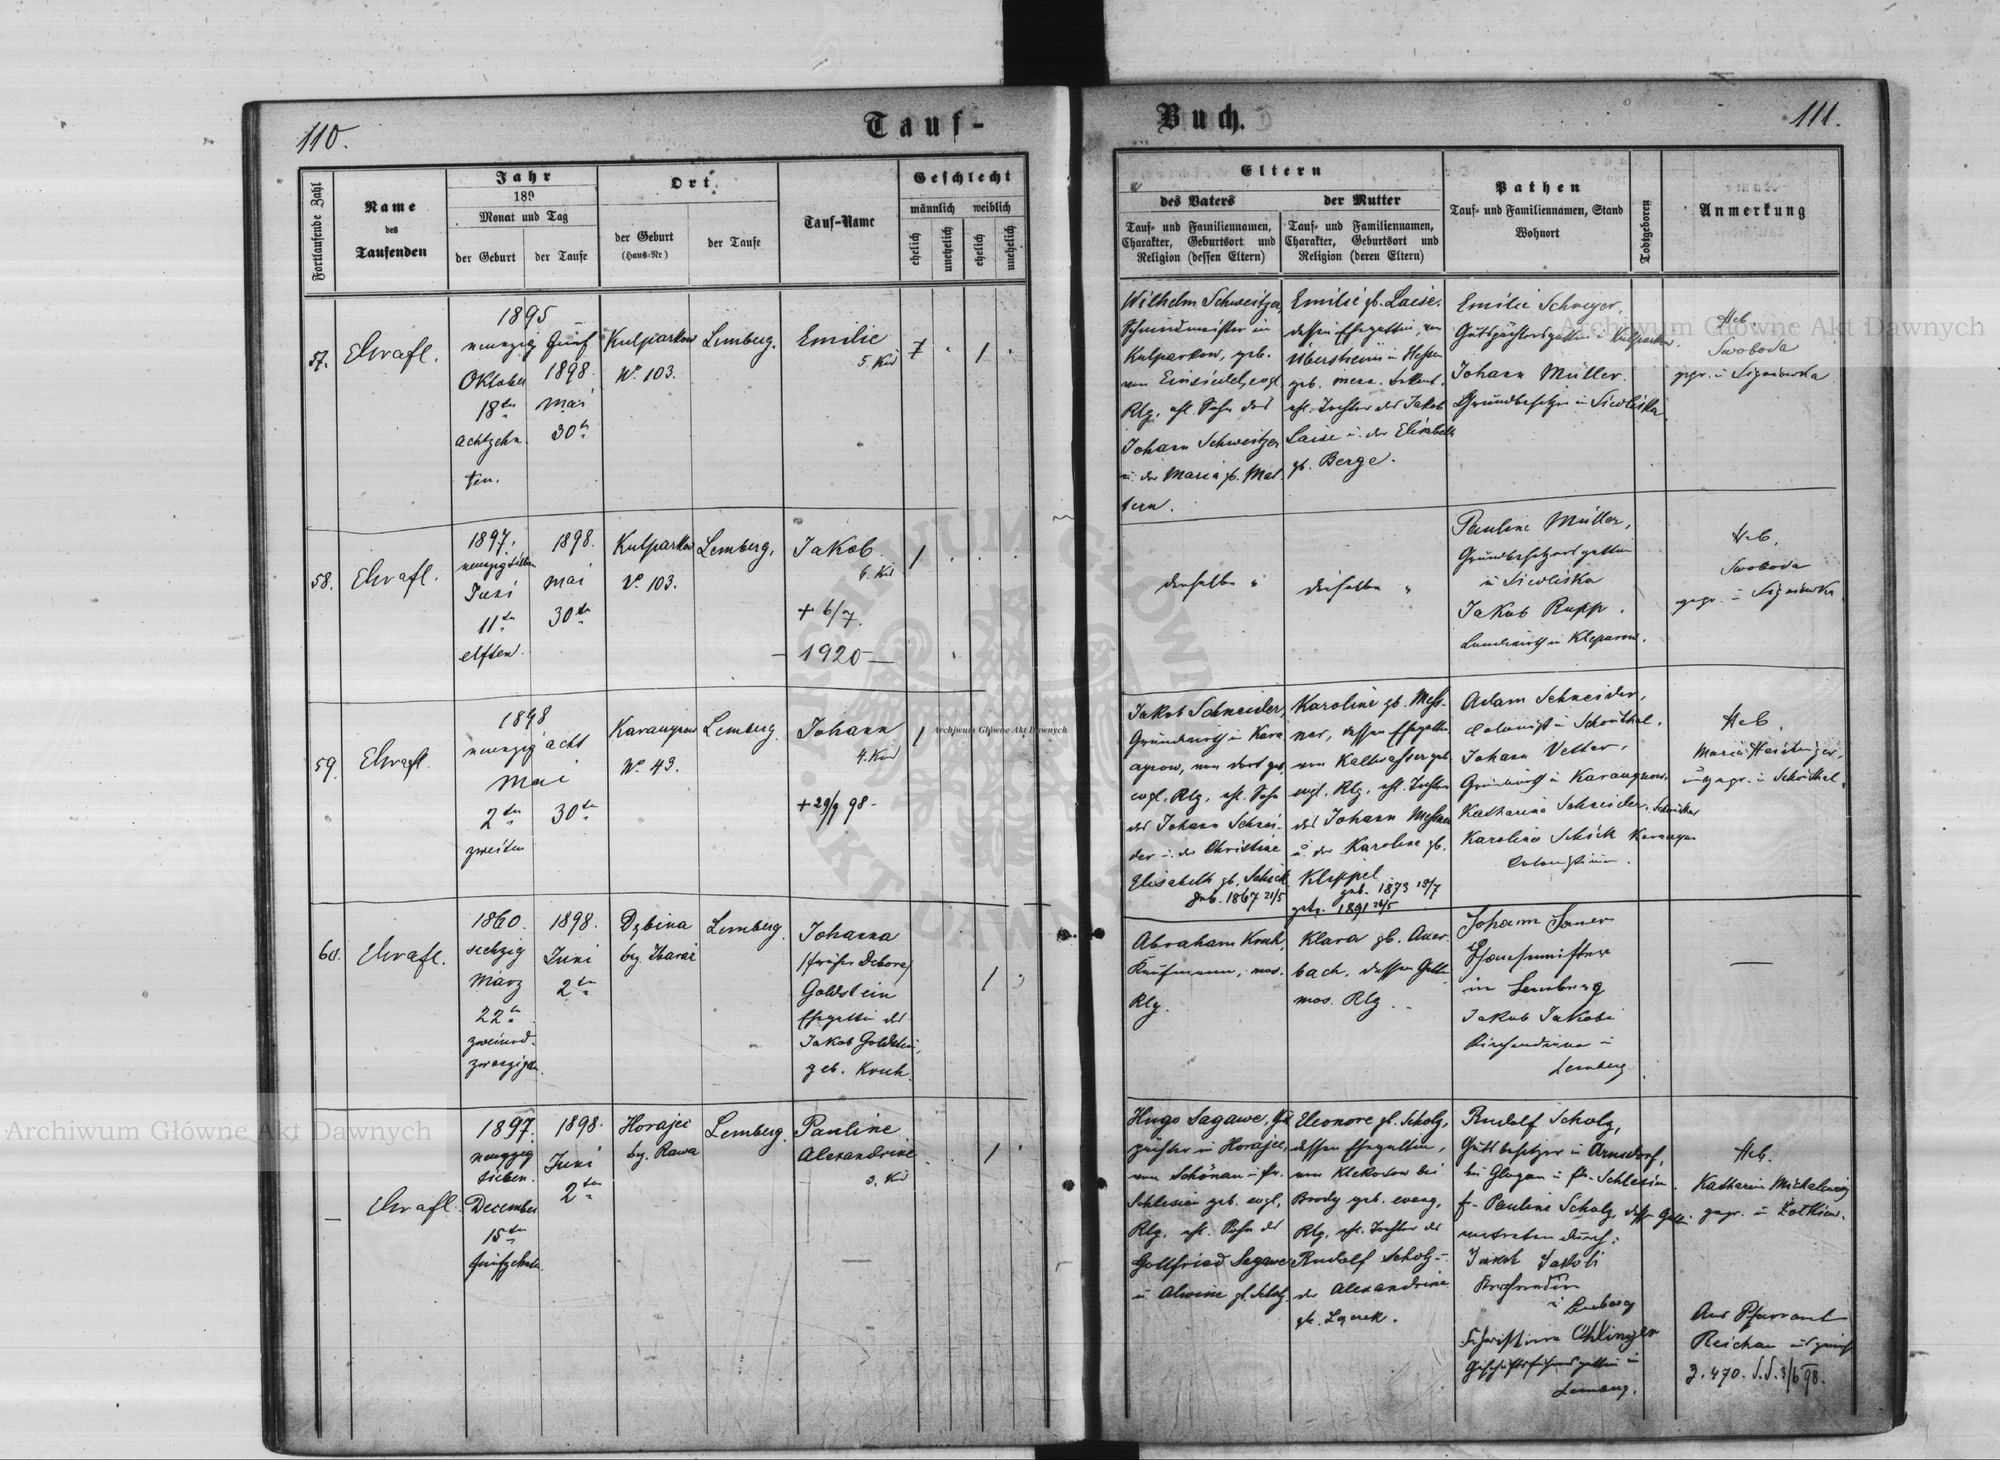 110.
Tauf-
Fortlaufende Zahl
Name
des
Taufenden
Jahr
189
Monat und Tag
der Geburt
der Taufe
Ort
der Geburt
(Haus-Nr)
der Taufe
Tauf-Name
Geschlecht
männlich
weiblich
ehelich
unehelich
ehelich
unehelich
57.
1895
neunzig fünf
Oktober
18ten
achtzehn
ten.
1898.
Mai
30tn
Kulparkow
No 103.
Lemberg.
Emilie
5. Kid
1
58.
1897.
Juni
11ten
elften.
1898.
Mai
30ten
Kulparkow
No 103.
Lemberg.
Jakob
6. Kid
+ 6/7.
1920
1
59.
1898
neunzig acht
Mai
2ten
zweiten
30ten
Karaczynow
No 43.
Lemberg.
Johann
4. Kid
+ 29/9 98 -
1
60.
1860.
sechzig
März
22tn
zweiund-
zwanzigsten.
1898.
Juni
2tn
Dębina
Lemberg.
Johanna
(früher Debora)
Goldstein
Ehegattin des
Jakob Goldstein,
geb. Kruh.
1
1897.
neunzig
sieben.
December
15ten
fünfzehnten
1898.
Juni
2ten
Horajec
bz. Rawa
Lemberg.
Pauline
Alexandrine
3. Kid
1
Buch.
111.
Eltern
des Vaters
Tauf- und Familiennamen,
Charakter, Geburtsort und
Religion (dessen Eltern)
der Mutter
Tauf- und Familiennamen,
Charakter, Geburtsort und
Religion (deren Eltern)
Pathen
Tauf- und Familiennamen, Stand
Wohnort
Todtgeboren
Anmerkung
Wilhelm Schweitzer,
Kulparkow, geb.
von Einsiedel, evgl.
Rlg. ehl. Sohn des
Johann Schweitzer
u. der Maria gb. Mat-
tern.
Emilie gb. Laise.
dessen Ehegattin, von
Ubersheim in Hessen
ehl. Tochter des Jakob
Laise u. der Elisabeth
gb. Berge.
Emilie Schreyer,
Gutspächtersgattin in Kulparkow.
Johann Müller.
Grundbesitzer in Siedliska
Heb.
Swoboda
gepr. in Sygniowka
derselbe "
dieselbe "
Pauline Müller,
Grundbesitzersgattin
in Siedliska
Jakob Rupp,
Landwirth in Kleparow.
Heb.
Swoboda
gepr. in Sygniowka
Jakob Schneider,
Grundwirth in Kara
czynow, von dort geb.
evgl. Rlg. ehl. Sohn
des Johann Schnei-
der u. der Christine
Elisabeth gb. Schick
geb. 1867 21/5
Karoline gb. Mess-
ner, dessen Ehegattin
von Kaltwasser geb.
evgl. Rlg. ehl. Tochter
des Johann Messner
u. der Karoline gb.
Klippel
geb. 1873 18/7
getr. 1891 26/5
Adam Schneider,
Colonist in Schönthal.
Johann Vetter,
Grundwirth in Karaczynow.
Katharina Schneider, Schönthal
Karoline Schick Karaczynow
Colonistin.
Heb.
gepr. in Schönthal
Abraham Kruh,
Kaufmann, mos.
Rlg.
Klara gb. Auer-
bach, dessen Gattin
mos. Rlg.
Johann Sauer
in Lemberg
Jakob Jakobi
Kirchendiener in
Lemberg
—
Hugo Sagawe, Gut
pächter in Horajec,
von Schönau in Pr.
Schlesien geb. evgl.
Rlg. ehl. Sohn des
Gottfried Sagawe
u. Alwine gb. Scholz
Eleonore gb. Scholz,
dessen Ehegattin,
von Klekotow bei
Brody geb. evang.
Rlg. ehl. Tochter des
Rudolf Scholz u.
der Alexandrine
Rudolf Scholz,
Gutsbesitzer in Arnsdorf,
bei Glogau in Pr. Schlesien.
Pauline Scholz, dess. Gattin
vertreten durch:
Jakob Jakobi
Kirchendiener
in Lemberg
Christine Öhlinger
Geschäftsführersgattin in
Lemberg.
Heb.
gepr. in Żółkiew.
Aus Pfarramt
Reichau
Z. 470. d.d. 3/6 98.
Archiwum Główne Akt Dawnych
Archiwum Główne Akt Dawnych
Archiwum Główne Akt Dawnych